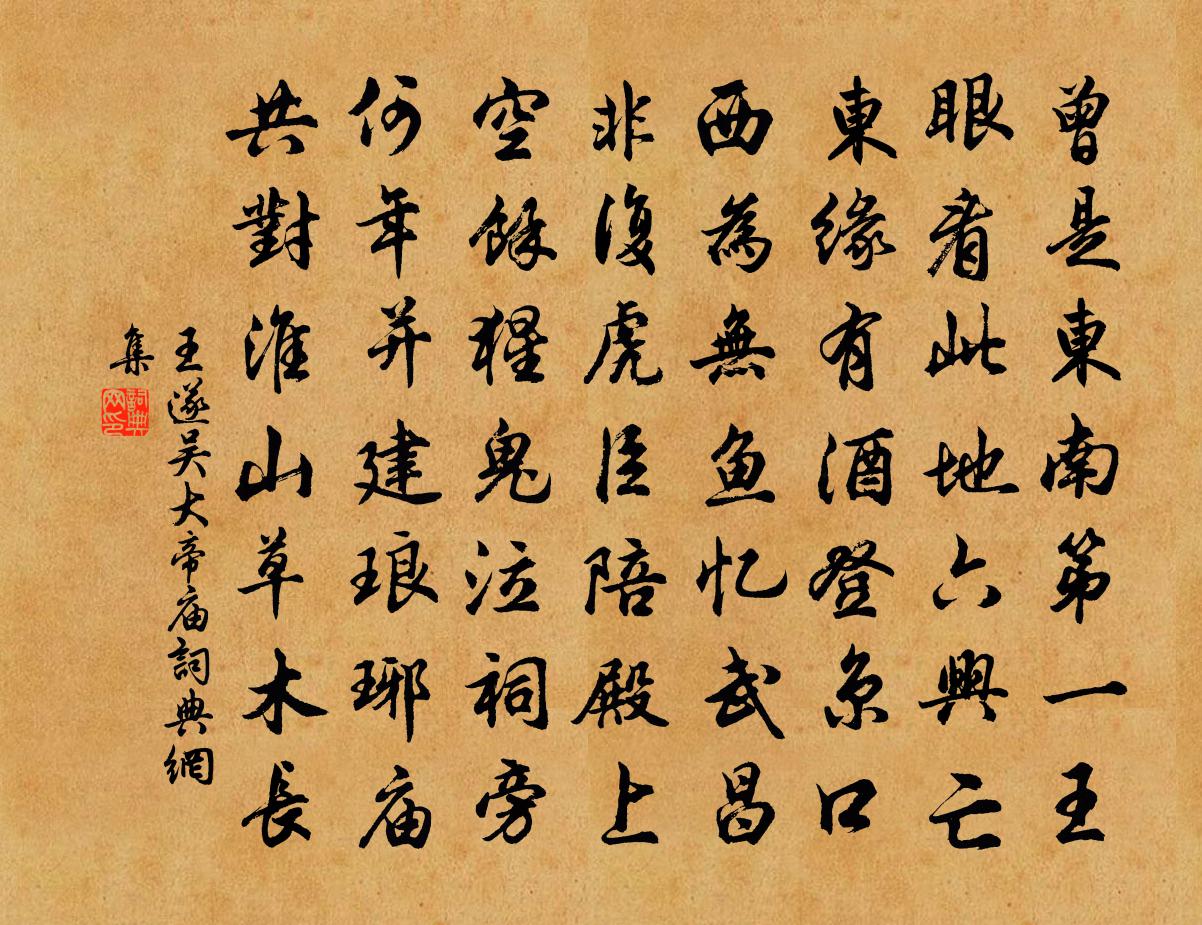 曾是東南第一王
眼看此地六興亡
東緣有酒登京口
西為無鱼忆武昌
非復虎臣陪殿上
空餘猩鬼泣祠旁
何年并建琅琊庙
共對淮山草木長
王遂吴大帝庙詞典網
集
詞典网印